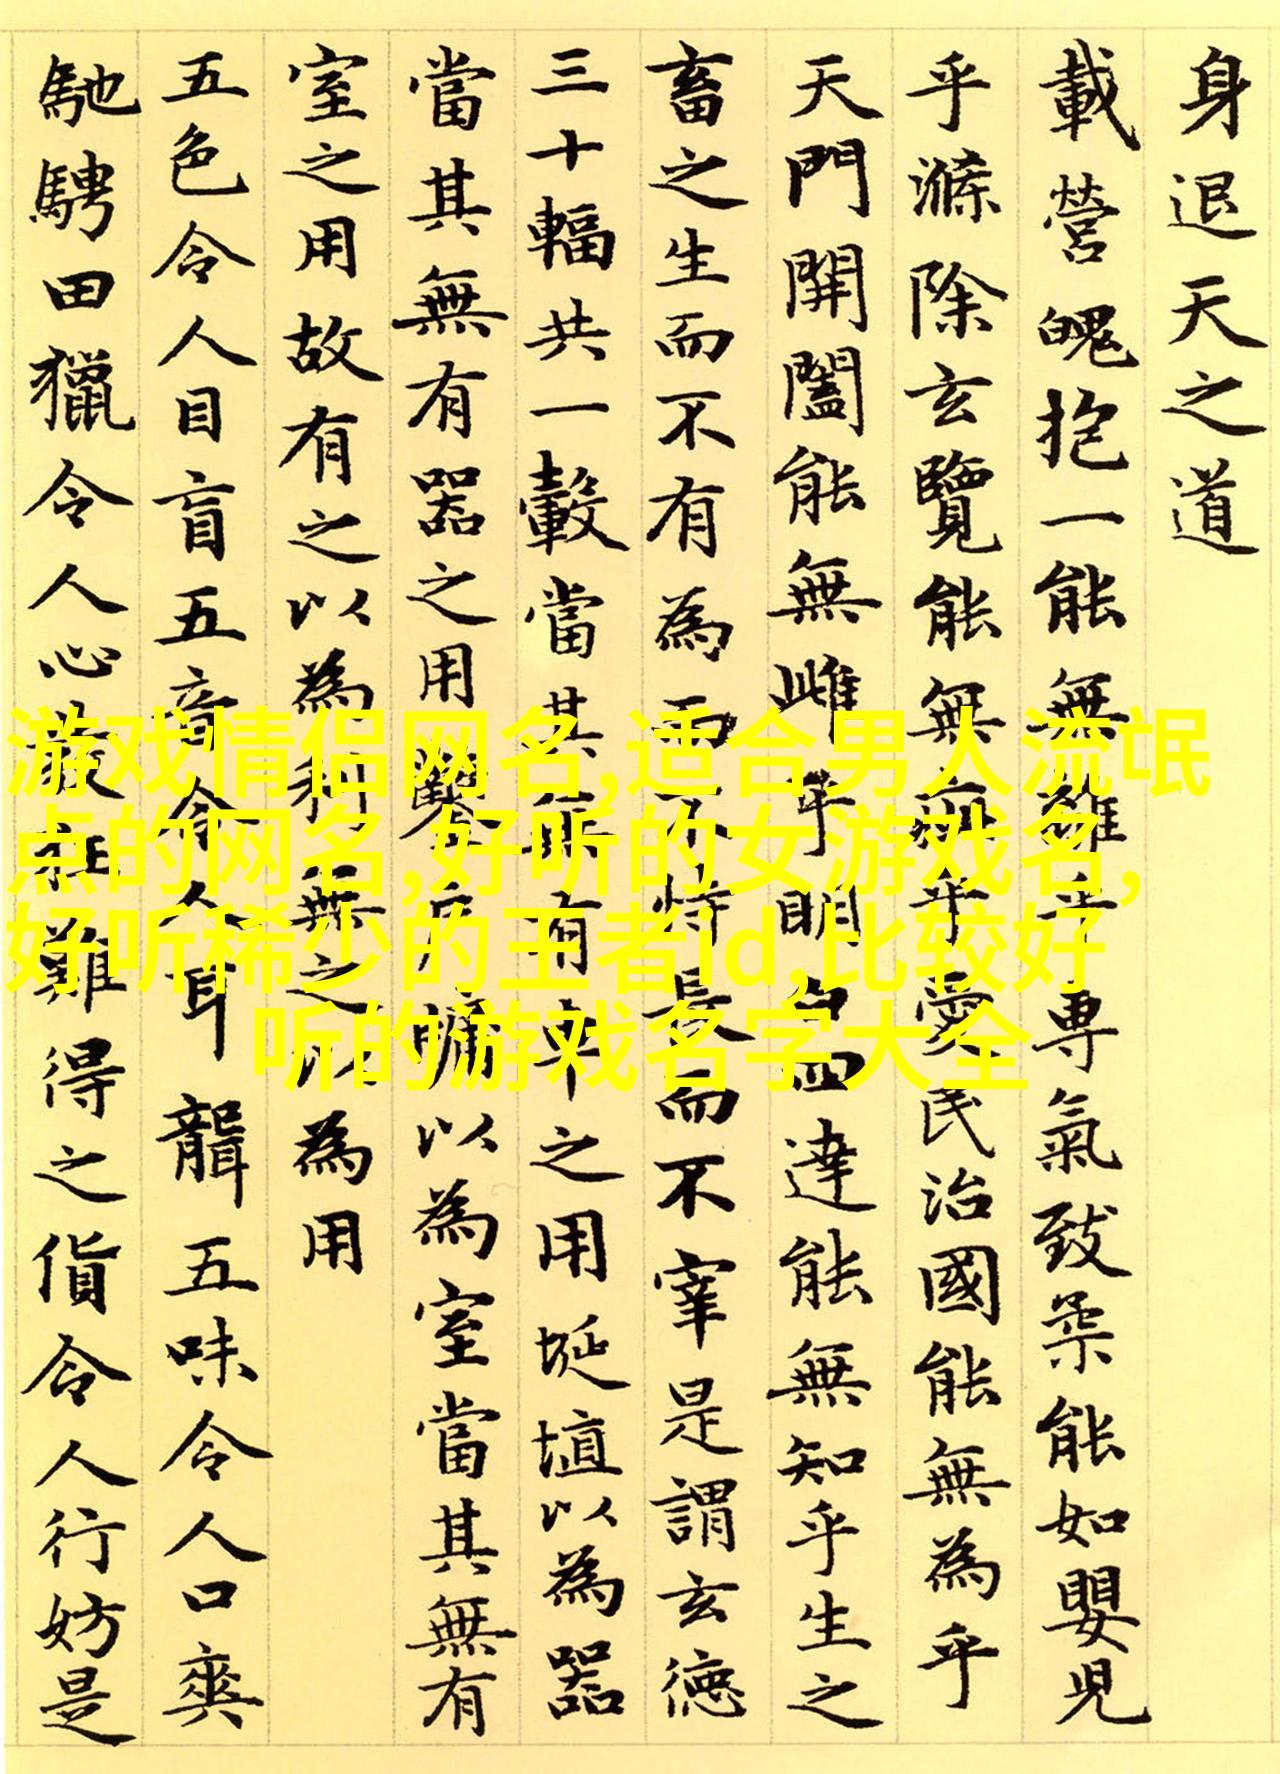 身退天之道
載營魄抱一能無離乎專氣致柔能如嬰兒
乎滌除玄覽能無疵乎愛民治國能無為乎
天門開闔能無雌乎明白四達能無知乎生之
畜之生而不有為而不恃長而不宰是謂玄德
三十輻共一轂當其無有車之用埏埴以為器
當其無有器之用鑿戶牖以為室當其無有
室之用故有之以為利無之以為用
五色令人目盲五音令人耳聾五味令人口爽
馳騁田獵令人心發狂難得之貨令人行妨是
游戏情侣网名,适合男人流氓
点的网名,好听的女游戏名,
好听稀少的王者id,比较好
听的游戏名字大全